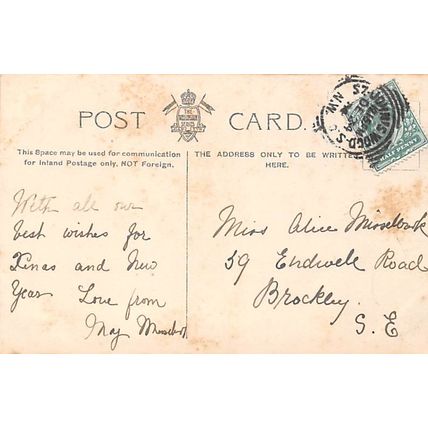 POST CARD.
This Space may be used for communication
for Inland Postage only, NOT Foreign.
THE ADDRESS ONLY TO BE WRITTEN
HERE.
With all our
best wishes for
Xmas and New
Year Love from
May
Miss Alice
59 Endwell Road
Brockley.
S. E
HALFPENNY
N.W